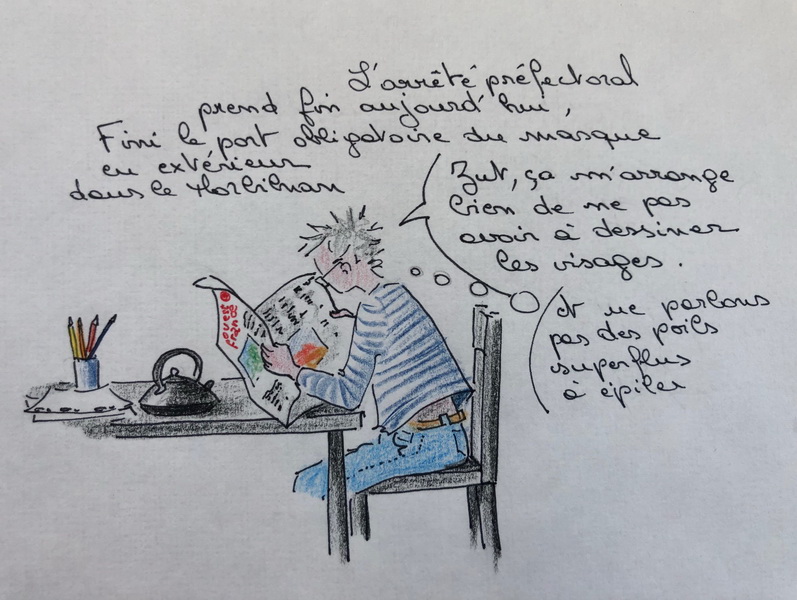 L'arrêté préfectoral
prend fin aujourd'hui,
Fini le port obligatoire du masque
en extérieur
dans le Morbihan
Zut, ça m'arrange
bien de ne pas
avoir à dessiner
les visages.
et ne parlons
pas des poils
superflus
à épiler
ouest
france